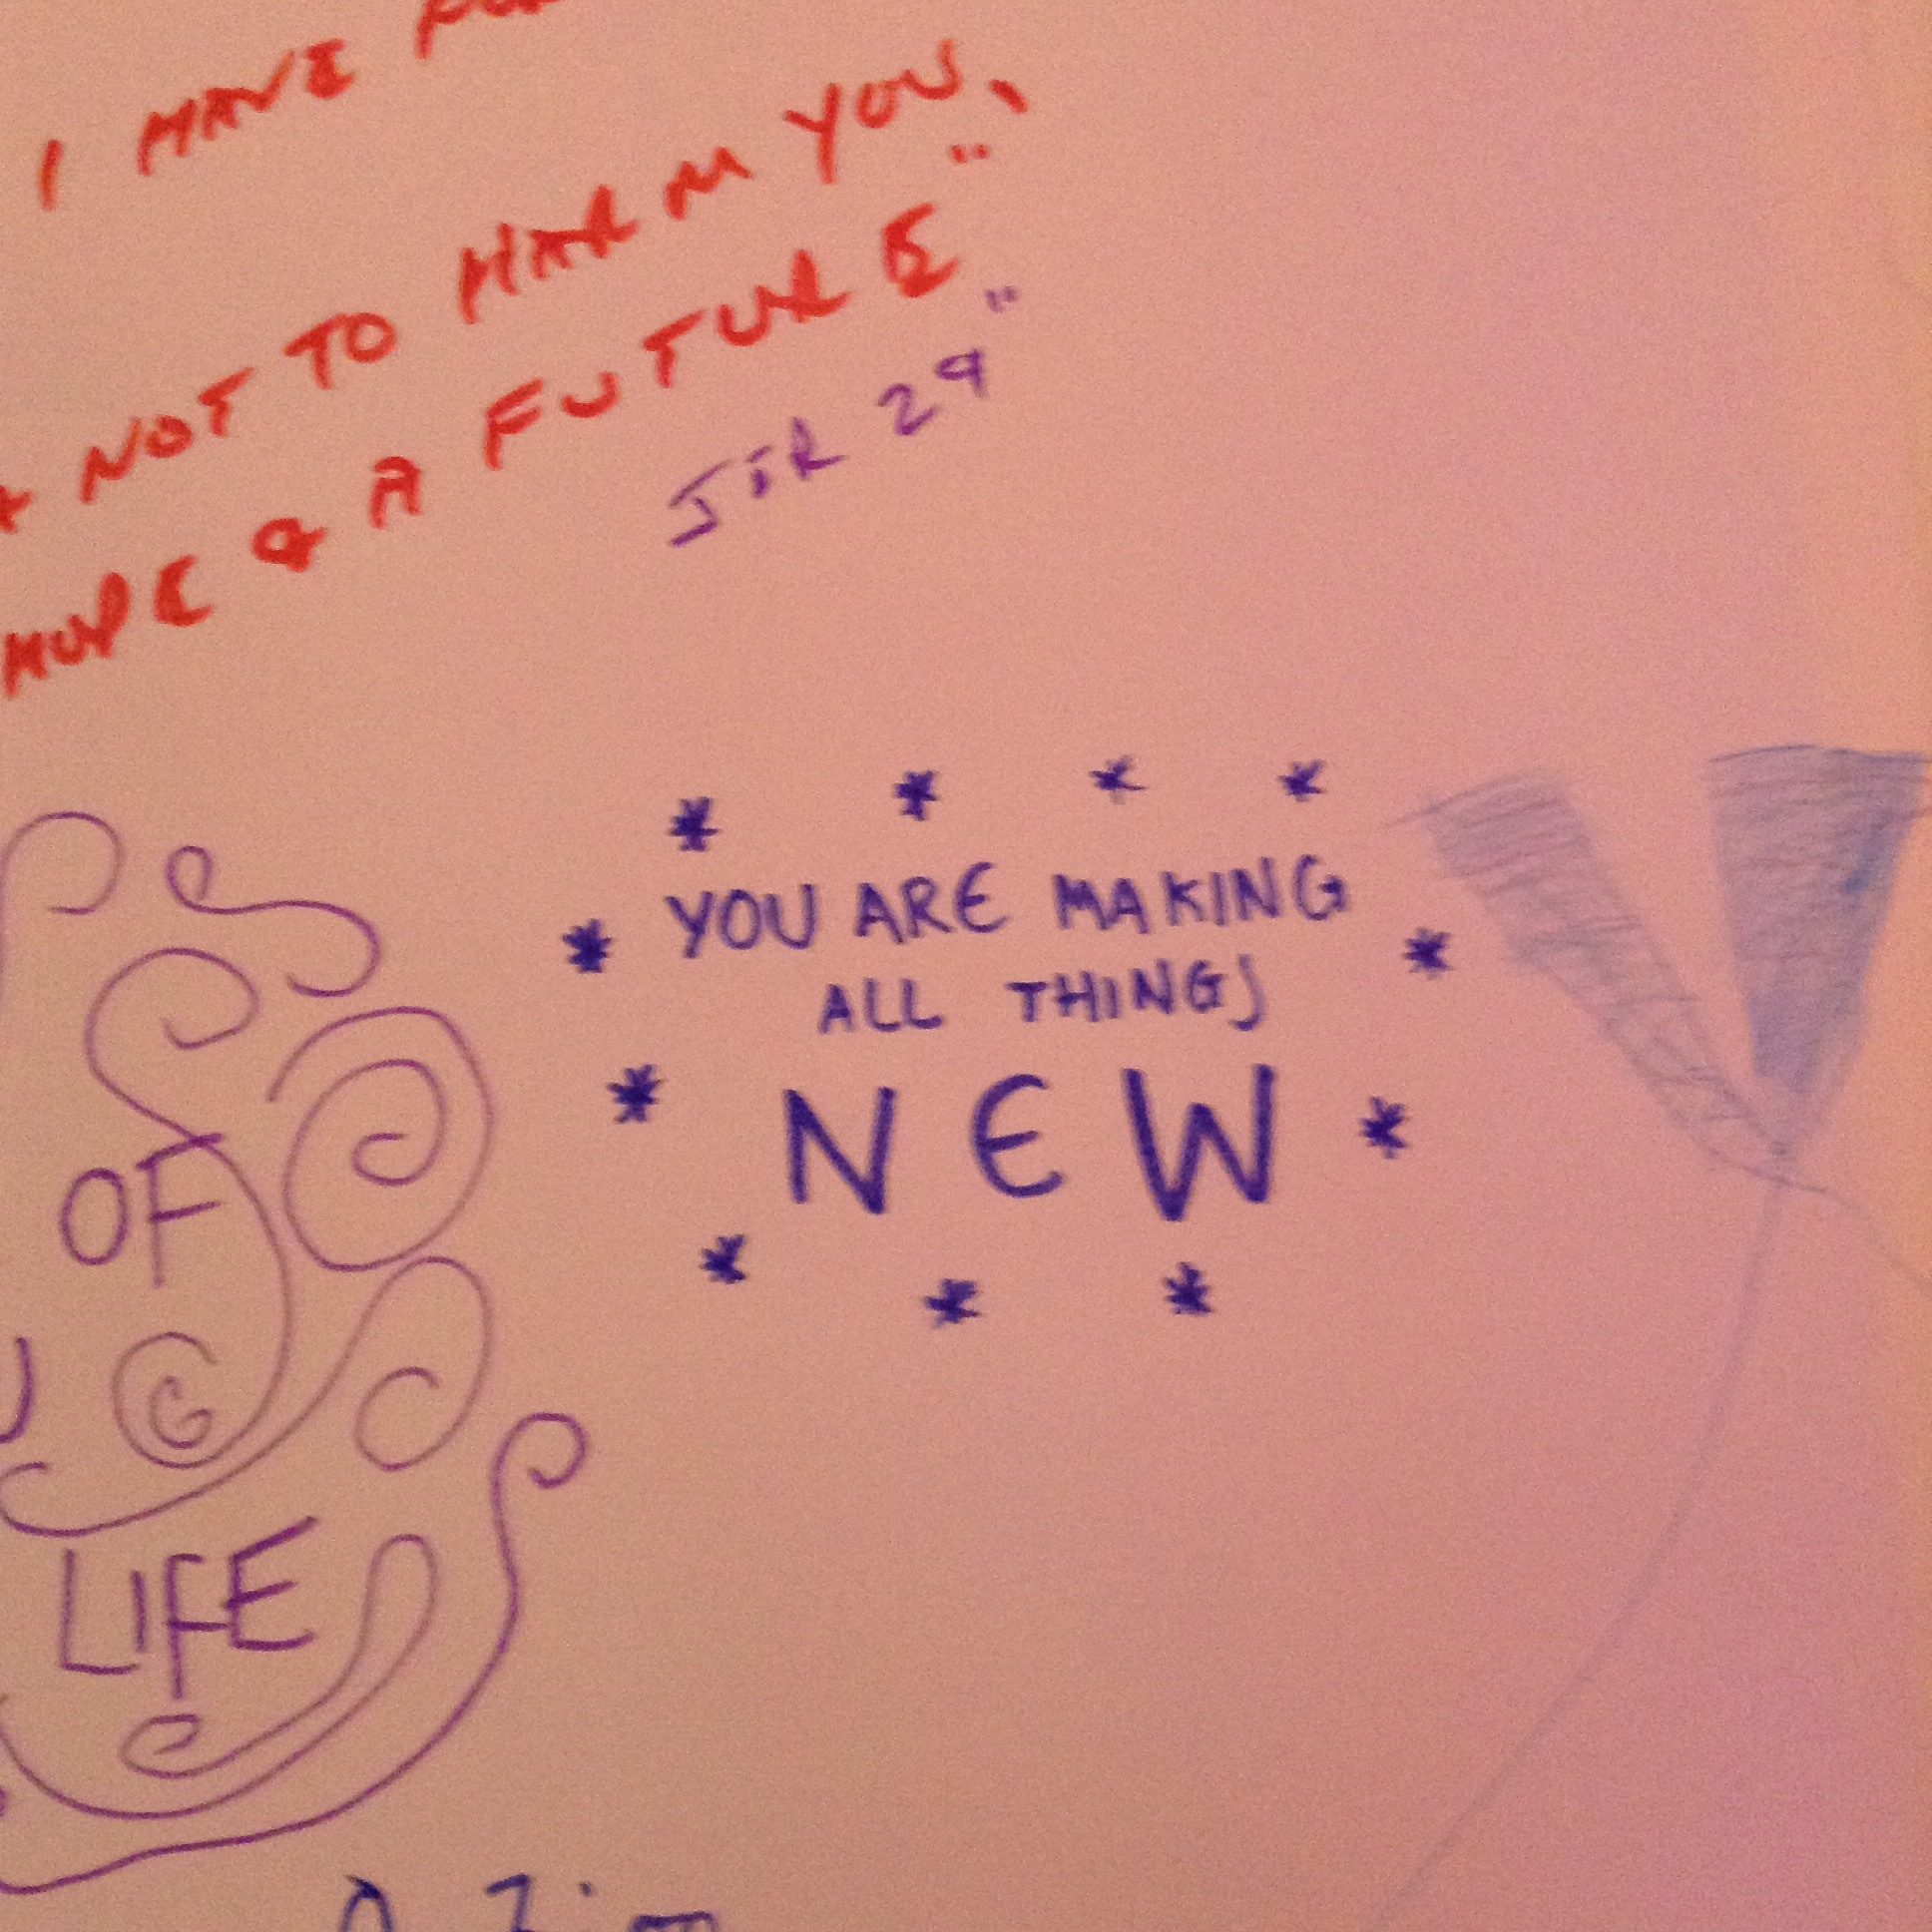 I HAVE FOR
& NOT TO HARM YOU,
HOPE & A FUTURE"
JER 29"
YOU ARE MAKING
ALL THINGS
NEW
OF
LIFE